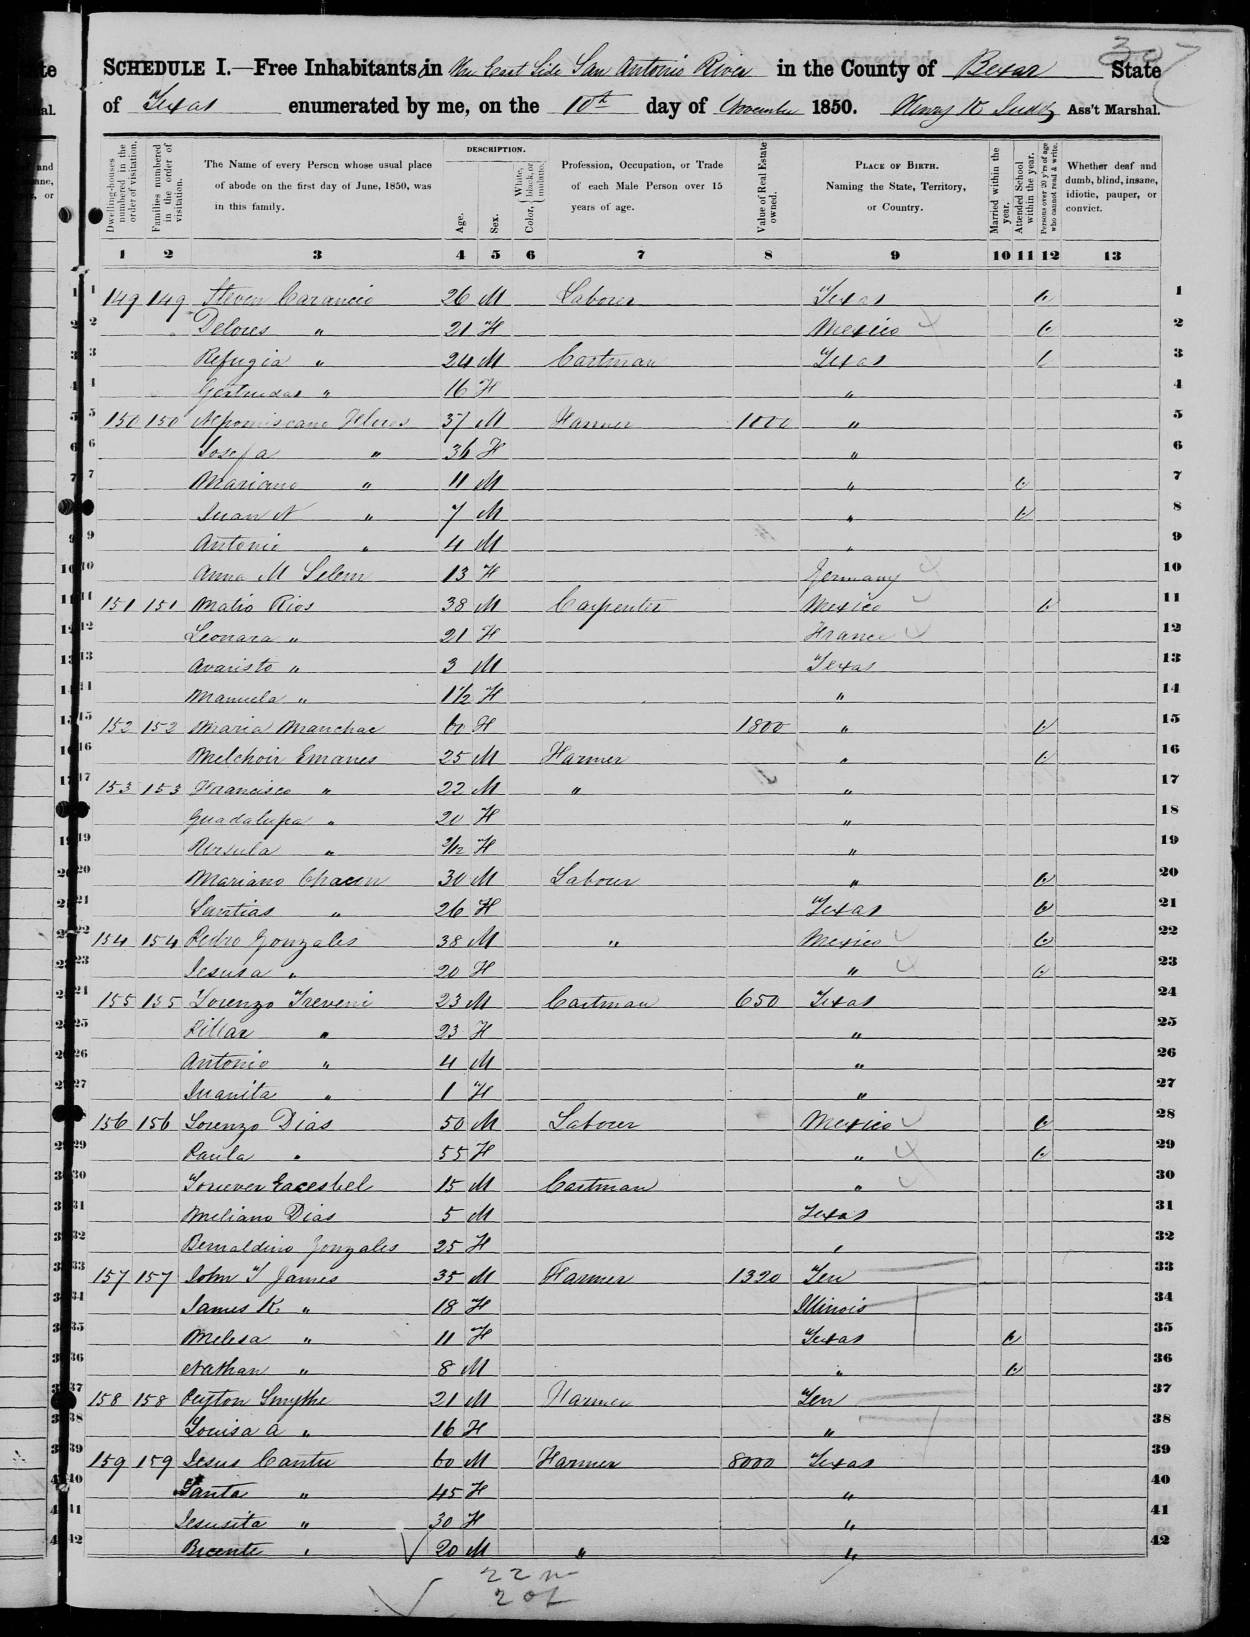 307
SCHEDULE I.—Free Inhabitants in the East Side San Antonio River in the County of Bexar State
of Texas enumerated by me, on the 10th day of November 1850. Henry K Judd Ass't Marshal.
Dwelling-houses numbered in the order of visitation.
Families numbered in the order of visitation.
The Name of every Person whose usual place of abode on the first day of June, 1850, was in this family.
DESCRIPTION.
Age.
Sex.
Color, { White, black, or mulatto.
Profession, Occupation, or Trade of each Male Person over 15 years of age.
Value of Real Estate owned.
PLACE OF BIRTH. Naming the State, Territory, or Country.
Married within the year.
Attended School within the year.
Persons over 20 y'rs of age who cannot read & write.
Whether deaf and dumb, blind, insane, idiotic, pauper, or convict.
1 2 3 4 5 6 7 8 9 10 11 12 13
1 149 149 Steven Carancio 26 M Laborer Texas 1
2 Delores " 21 F Mexico 2
3 Refugia " 24 M Cartman Texas 3
4 Gertrudas " 16 F " 4
5 150 150 Nepomiscano Flores 37 M Farmer 1000 " 5
6 Josefa " 36 F " 6
7 Mariano " 11 M " 7
8 Juan N " 7 M " 8
9 Antonio " 4 M " 9
10 Anna M Selem 13 F Germany 10
11 151 151 Matio Rios 38 M Carpenter Mexico 11
12 Leonara " 21 F France 12
13 Avaristo " 3 M Texas 13
14 Manuela " 1½ F " 14
15 152 152 Maria Manchac 60 F 1800 " 15
16 Melchoir Emanes 25 M Farmer " 16
17 153 153 Francisco " 22 M " " 17
18 Guadalupa " 20 F " 18
19 Ursula " 2/12 F " 19
20 Mariano Chacon 30 M Labour " 20
21 Santias " 26 F Texas 21
22 154 154 Pedro Gonzales 38 M " Mexico 22
23 Jesusa " 20 F " 23
24 155 155 Lorenzo Treveni 23 M Cartman 650 Texas 24
25 Pillar " 23 F " 25
26 Antonio " 4 M " 26
27 Juanita " 1 F " 27
28 156 156 Lorenzo Dias 50 M Laborer Mexico 28
29 Paula " 55 F " 29
30 15 M Cartman " 30
31 Meliano Dias 5 M Texas 31
32 Bernaldino Gonzales 25 F " 32
33 157 157 John T James 35 M Farmer 1320 Ten 33
34 James K " 18 F Illinois 34
35 Melesa " 11 F Texas 35
36 Nathan " 8 M " 36
37 158 158 Peyton Smythe 21 M Farmer Ten 37
38 Louisa A " 16 F " 38
39 159 159 Jesus Cantu 60 M Farmer 8000 Texas 39
40 Santa " 45 F " 40
41 Jesusita " 30 F " 41
42 Bicente " 20 M " " 42
22 m
20 f